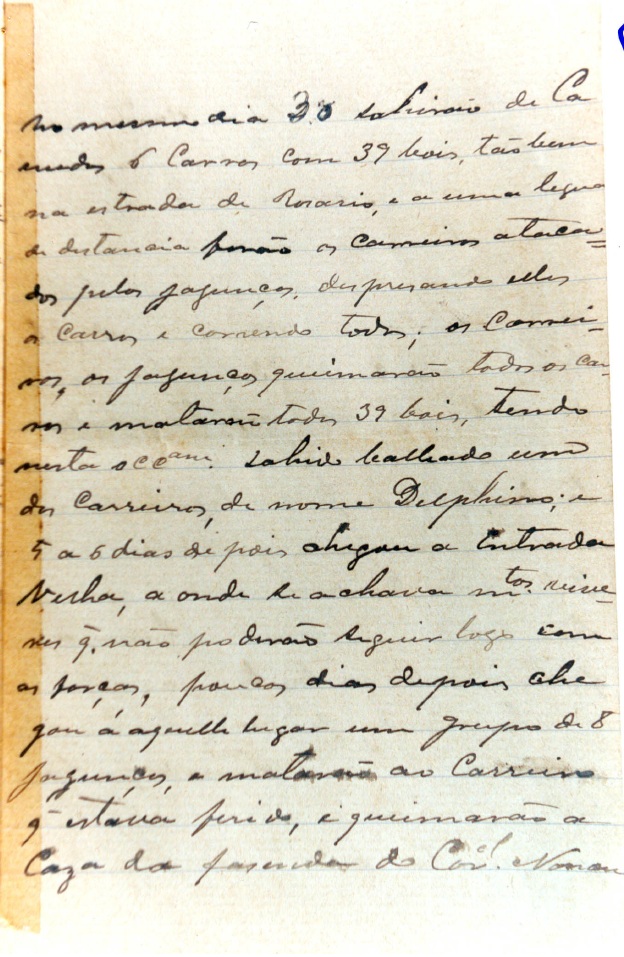 no mesmo dia 30 sahirão de Ca
nudos 6 Carros com 39 bois, tãobem
na estrada de Rosario, e a uma legua
de distancia forão os carreiros ataca=
dos pelos jagunços, despresando elles
os carros e correndo todos; os Carrei-
ros, os jagunços queimarão todos os car
ros e matarão todos 39 bois, tendo
nesta occam. sahido balhado um
dos Carreiros, de nome Delphino; e
5 a 6 dias depois chegou a Entrada
Velha, a onde se achava mtos. vive-
res q. não poderão seguir logo com
as forças, poucos dias depois che
gou á aquelle lugar um grupo de 8
jagunços, e matarão ao Carreiro
q estava ferido, e queimarão a
Caza da fazenda do Corel.